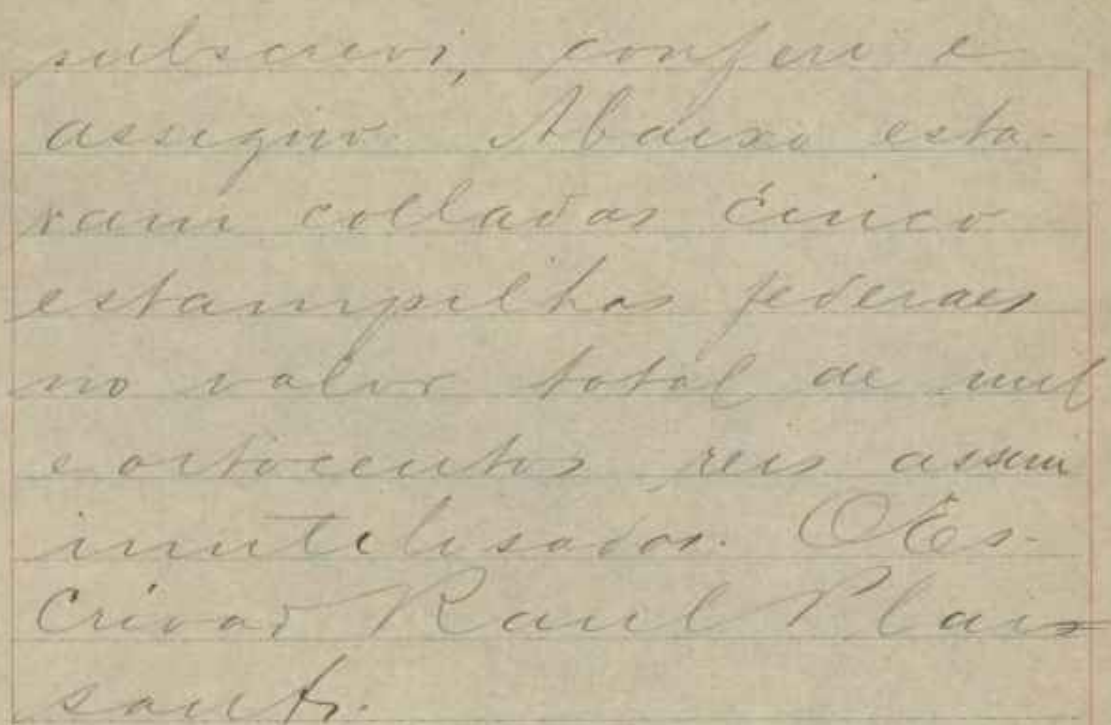 subscrevi, conferi e
assigno. Abaixo esta-
vam colladas cinco
estampilhas federaes
no valor total de mil
e oitocentos reis assim
inutilisados. O Es-
crivão Raul Plai
sant.